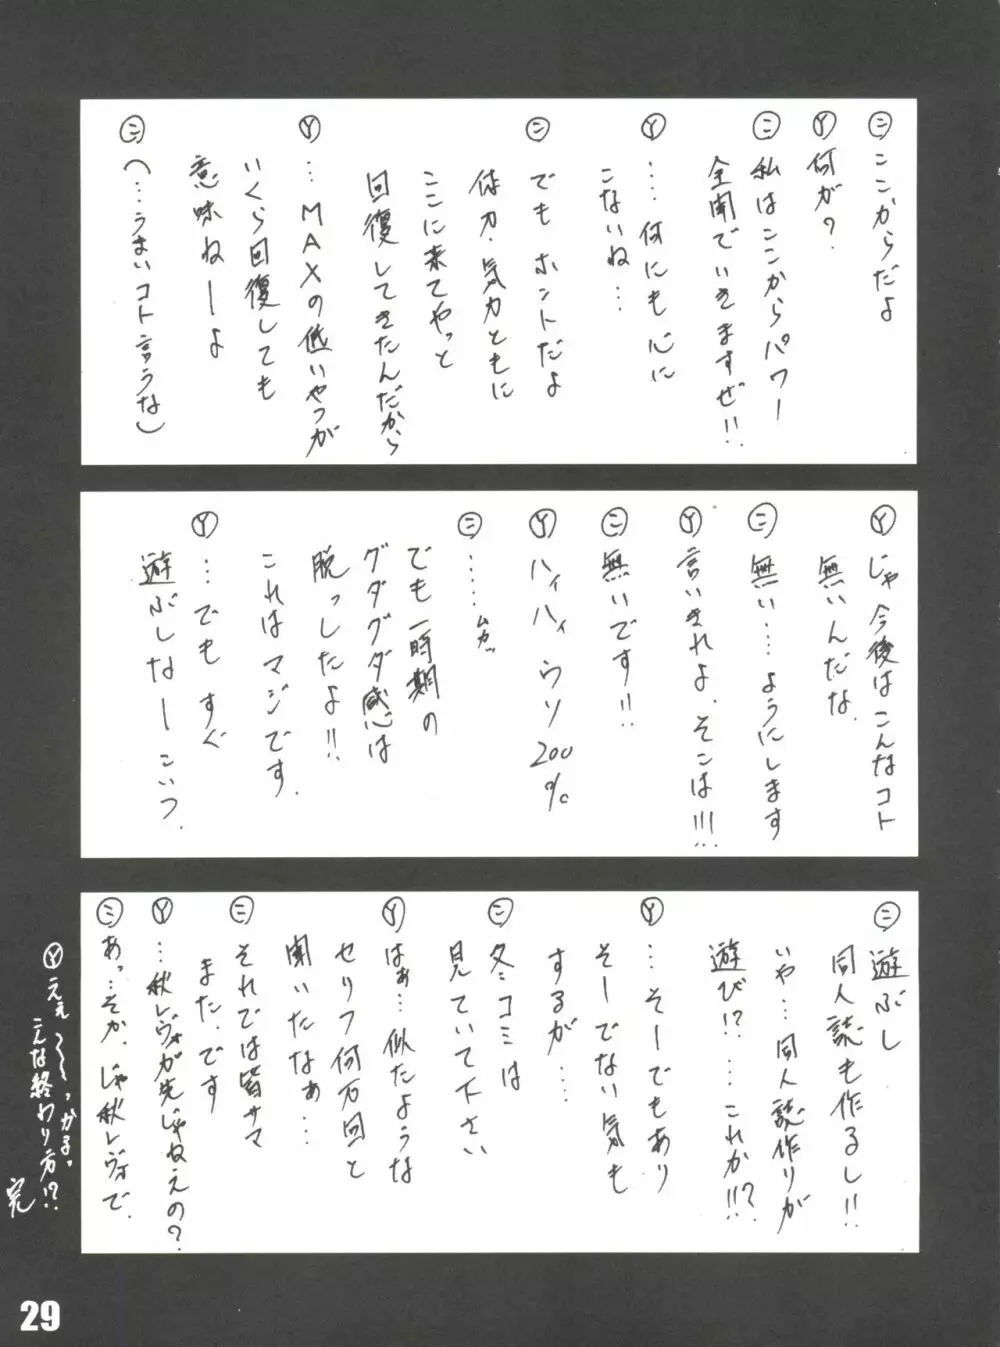 ㊁ ここからだよ
Ⓨ 何が?
㊁ 私はここからパワー
全開でいきますぜ!!
Ⓨ ‥‥何にも心に
こないね…
㊁ でもホントだよ
体力・気力ともに
ここに来てやっと
回復してきたんだから
Ⓨ …MAXの低いやつが
いくら回復しても
意味ねーよ
㊁ (…うまいコト言うな)
Ⓨ じゃ今後はこんなコト
無いんだな.
㊁ 無い‥‥ようにします
Ⓨ 言いきれよ.そこは!!!
㊁ 無いです!!
Ⓨ ハイハイ ウソ200%
㊁ ……ムカッ
でも一時期の
グダグダ感は
脱っしたよ!!
これはマジです.
Ⓨ …でもすぐ
遊ぶしなーこいつ.
㊁ 遊ぶし
同人誌も作るし!!
いや…同人誌作りが
遊び!?‥‥これか!!?
Ⓨ …そーでもあり
そーでない気も
するが‥‥
㊁ 冬コミは
見ていて下さい
Ⓨ はぁ…似たような
セリフ何万回と
聞いたなぁ…
㊁ それでは皆サマ
また.です
Ⓨ …秋レヴォが先じゃねえの?
㊁ あっ…そか.じゃ秋レヴォで.
Ⓨ ええ〜〜っかる。
こんな終わり方!?
完
29